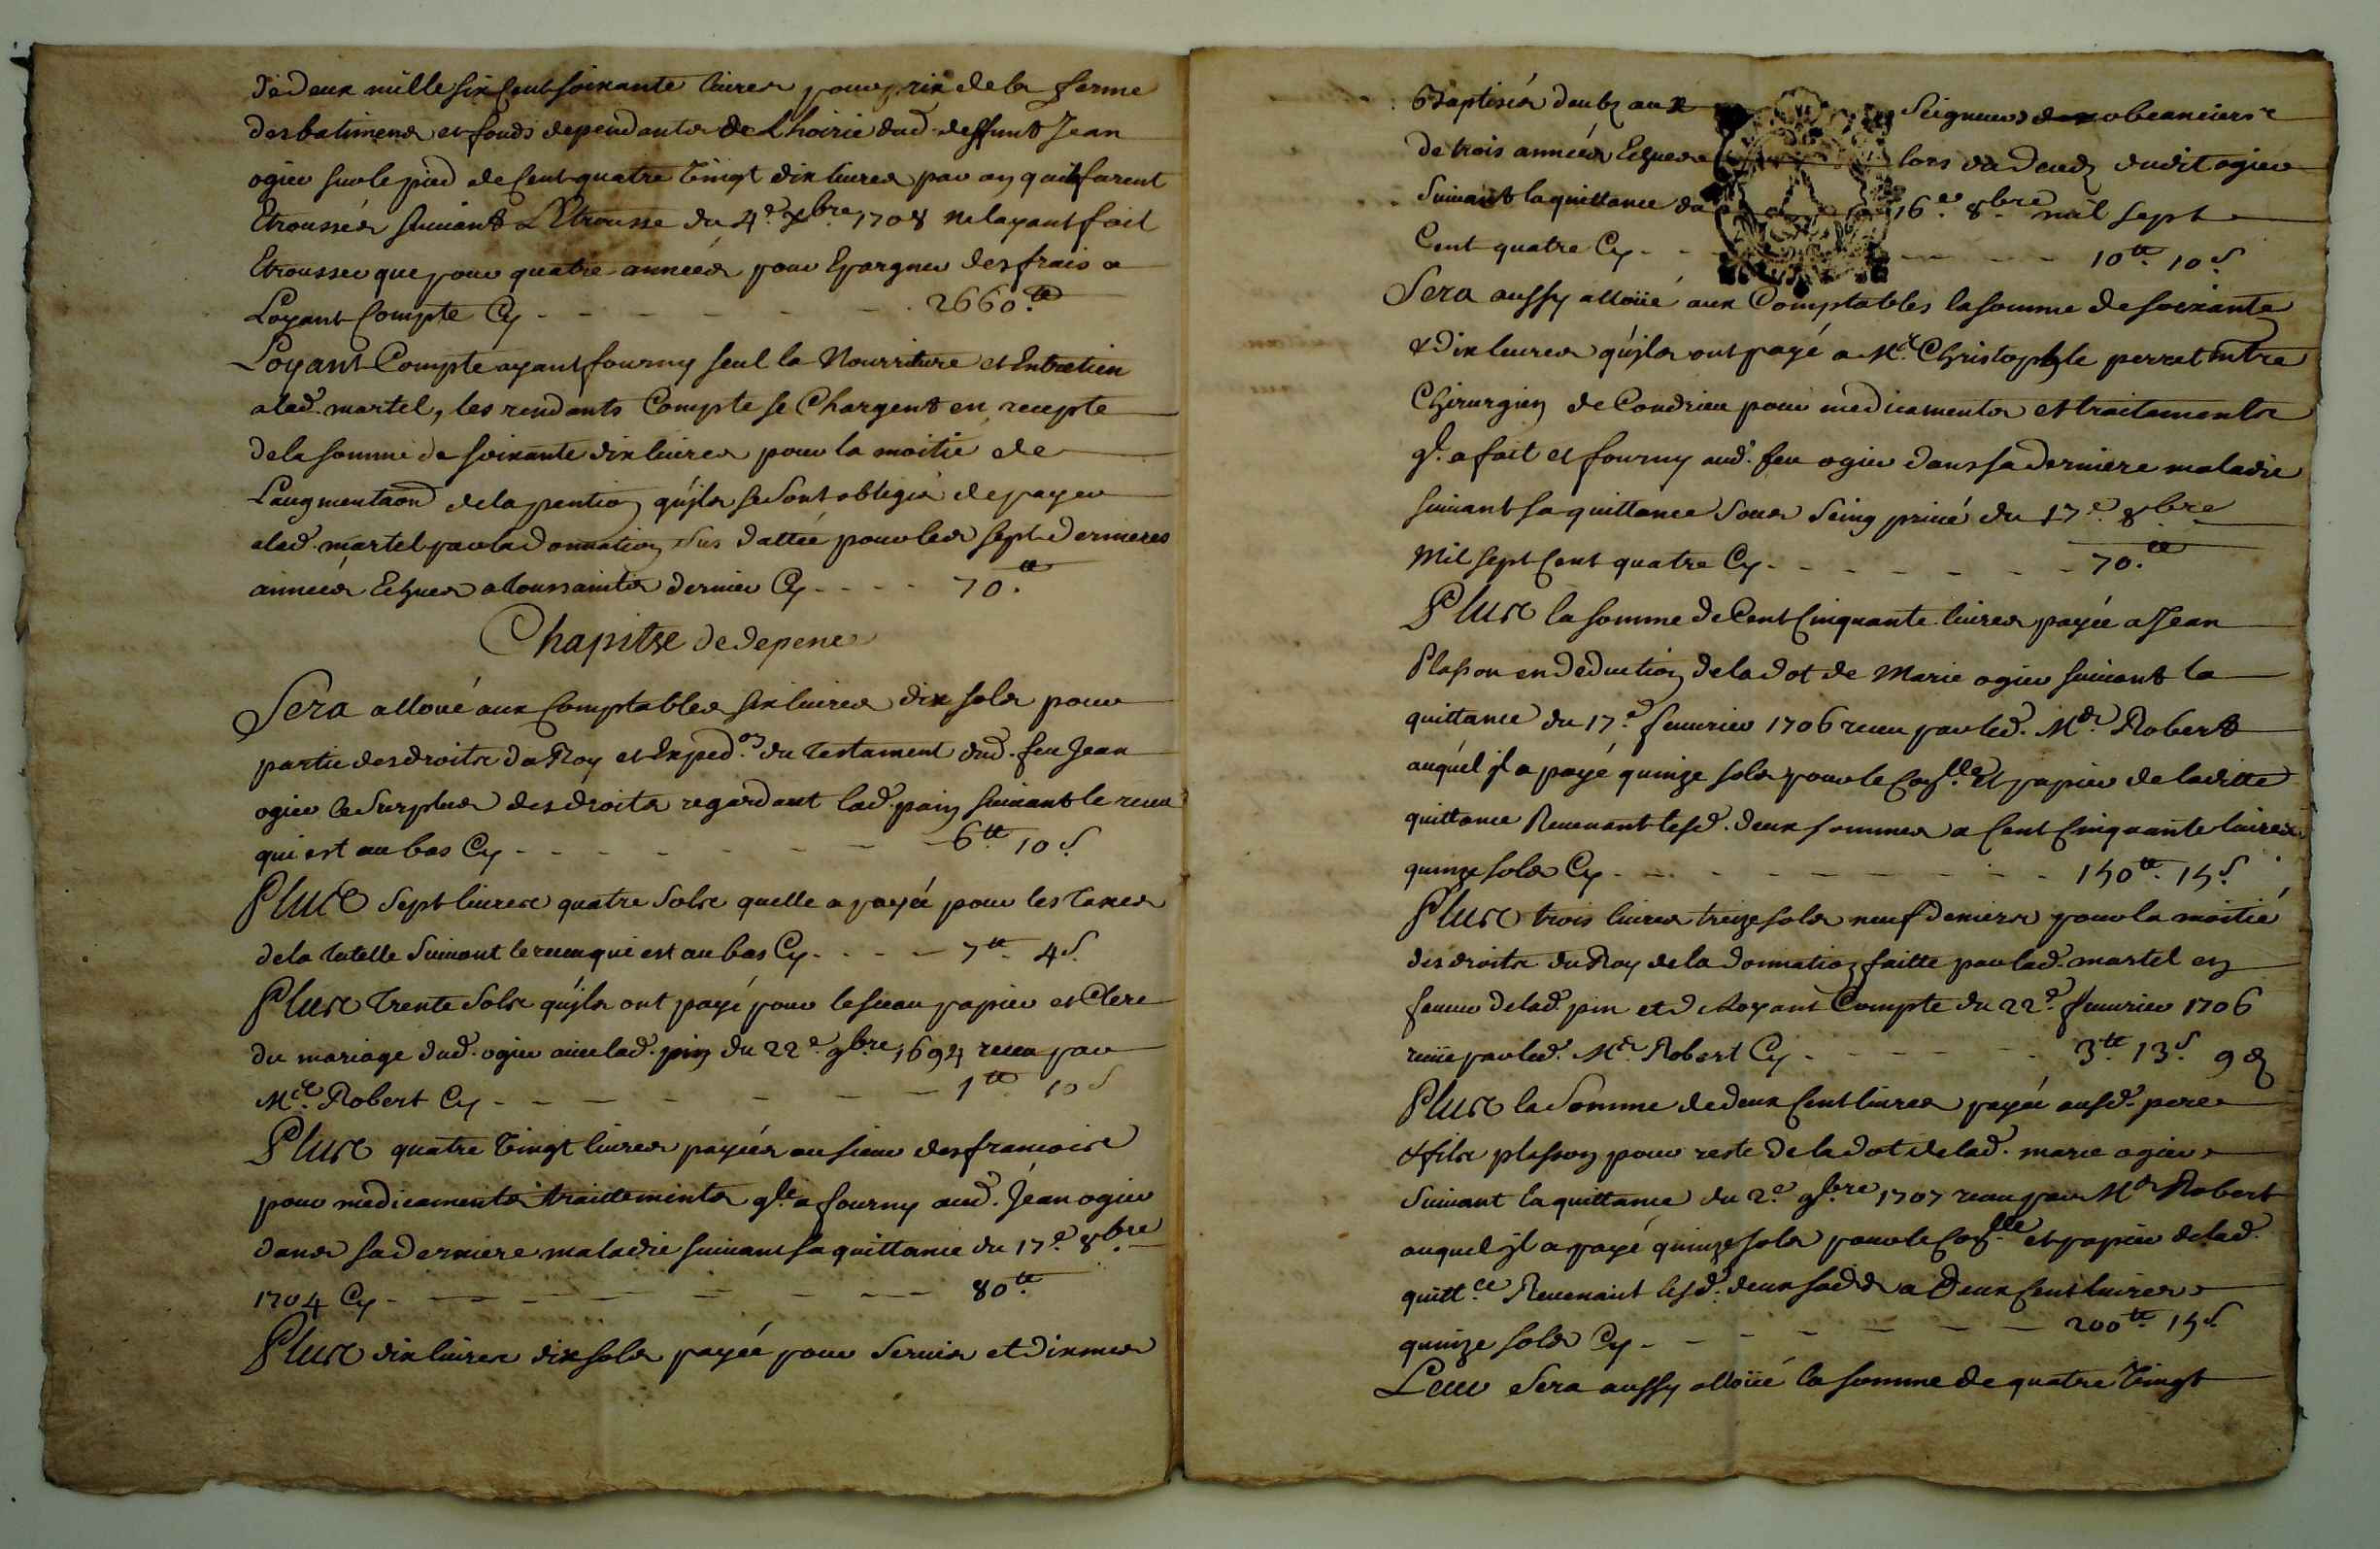 de deux mille six cent soixante livres pour prix de la ferme
des batimens et fonds dependants de Lhoirie dud. deffunt Jean
ogier sur le pied de cent quatre vingt dix livres par an quils furent
Etroussés suivant L'Etrousse du 4e xbre 1708 ne layant fait
Etrousser que pour quatre années pour Epargner des frais a
Loyant compte Cy - - - - - - 2660tt
Loyant Compte ayant fourny seul la Nourriture et Entretien
a lad. martel, les rendants Compte se Chargent en recepte
de la somme de soixante dix livres pour la moitié de
Laugmentaon de la pention qujls se sont obligés de payer
a lad. martel par la donnation sus dattée pour les sept dernieres
années Echues a toussaints dernier Cy - - - - 70.tt
Chapitre de depence
Sera alloué aux Comptables six livres dix sols pour
partie des droits du Roy et Exped.on du testament dud. feu Jean
ogier le surplus des droits regardant lad. pain suivant le receu
qui est au bas Cy - - - - - - - - 6tt 10s.
Plus sept livres quatre sols quelle a payée pour les taxes
de la tutelle suivant le receu qui est au bas Cy - - - - 7tt 4s.
Plus trente sols qujls ont payé pour le sceau papier et Clerc
du mariage dud. ogier avec lad. pin du 22e 9bre 1694 receu par
Me Robert Cy - - - - - - - 1tt 10s
Plus quatre vingt livres payées au sieur desfrancois
pour medicaments traittements qle a fourny aud. Jean ogier
dans sa derniere maladie suivant sa quittance du 17e 8bre
1704 Cy - - - - - - - 80tt
Plus dix livres dix sols payée pour servis et dixmes
Seigneurs obeanciers
de trois années Echues lors du deceds dudit ogier
suivant la quittance du 16e 8bre mil sept
Cent quatre Cy - - - - - 10tt 10s.
Sera aussy alloüé aux Comptables la somme de soixante
& dix livres qujls ont payé a Me Christophle perret mtre
Chirurgien de Condrieu pour medicaments et traitements
ql. a fait et fourny aud. feu ogier dans sa derniere maladie
suivant sa quittance sous seing privé du 17e 8bre
Mil sept Cent quatre Cy - - - - - - - 70.tt
Plus la somme de Cent Cinquante livres payée a Jean
Plasson en deduction de la dot de Marie ogier suivant la
quittance du 17e feuvrier 1706 receu par led. Me Robert
auquel jl a payé quinze sols pour le et papier de laditte
quittance Revenant lesd. deux sommes a Cent Cinquante livres
quinze sols Cy - - - - - - - - 150tt 15s.
Plus trois livres treize sols neuf deniers pour la moitié
des droits du Roy de la donnation faitte par lad. martel en
faveur de lad. pin et de Loyant Compte du 22e feuvrier 1706
receüe par led. Me Robert Cy - - - - - 3tt 13s 9d
Plus la somme de deux Cent livres payée ausd. pere
& fils plasson pour reste de la dot de lad. marie ogier
suivant la quittance du 2e 9bre 1707 receu par Me Robert
auquel jl a payé quinze sols pour le et papier de lad.
quitt.ce Revenant lesd. deux a deux Cent livres
quinze sols Cy - - - - - - - 200tt 15s.
Leur sera aussy alloüé la somme de quatre vingt